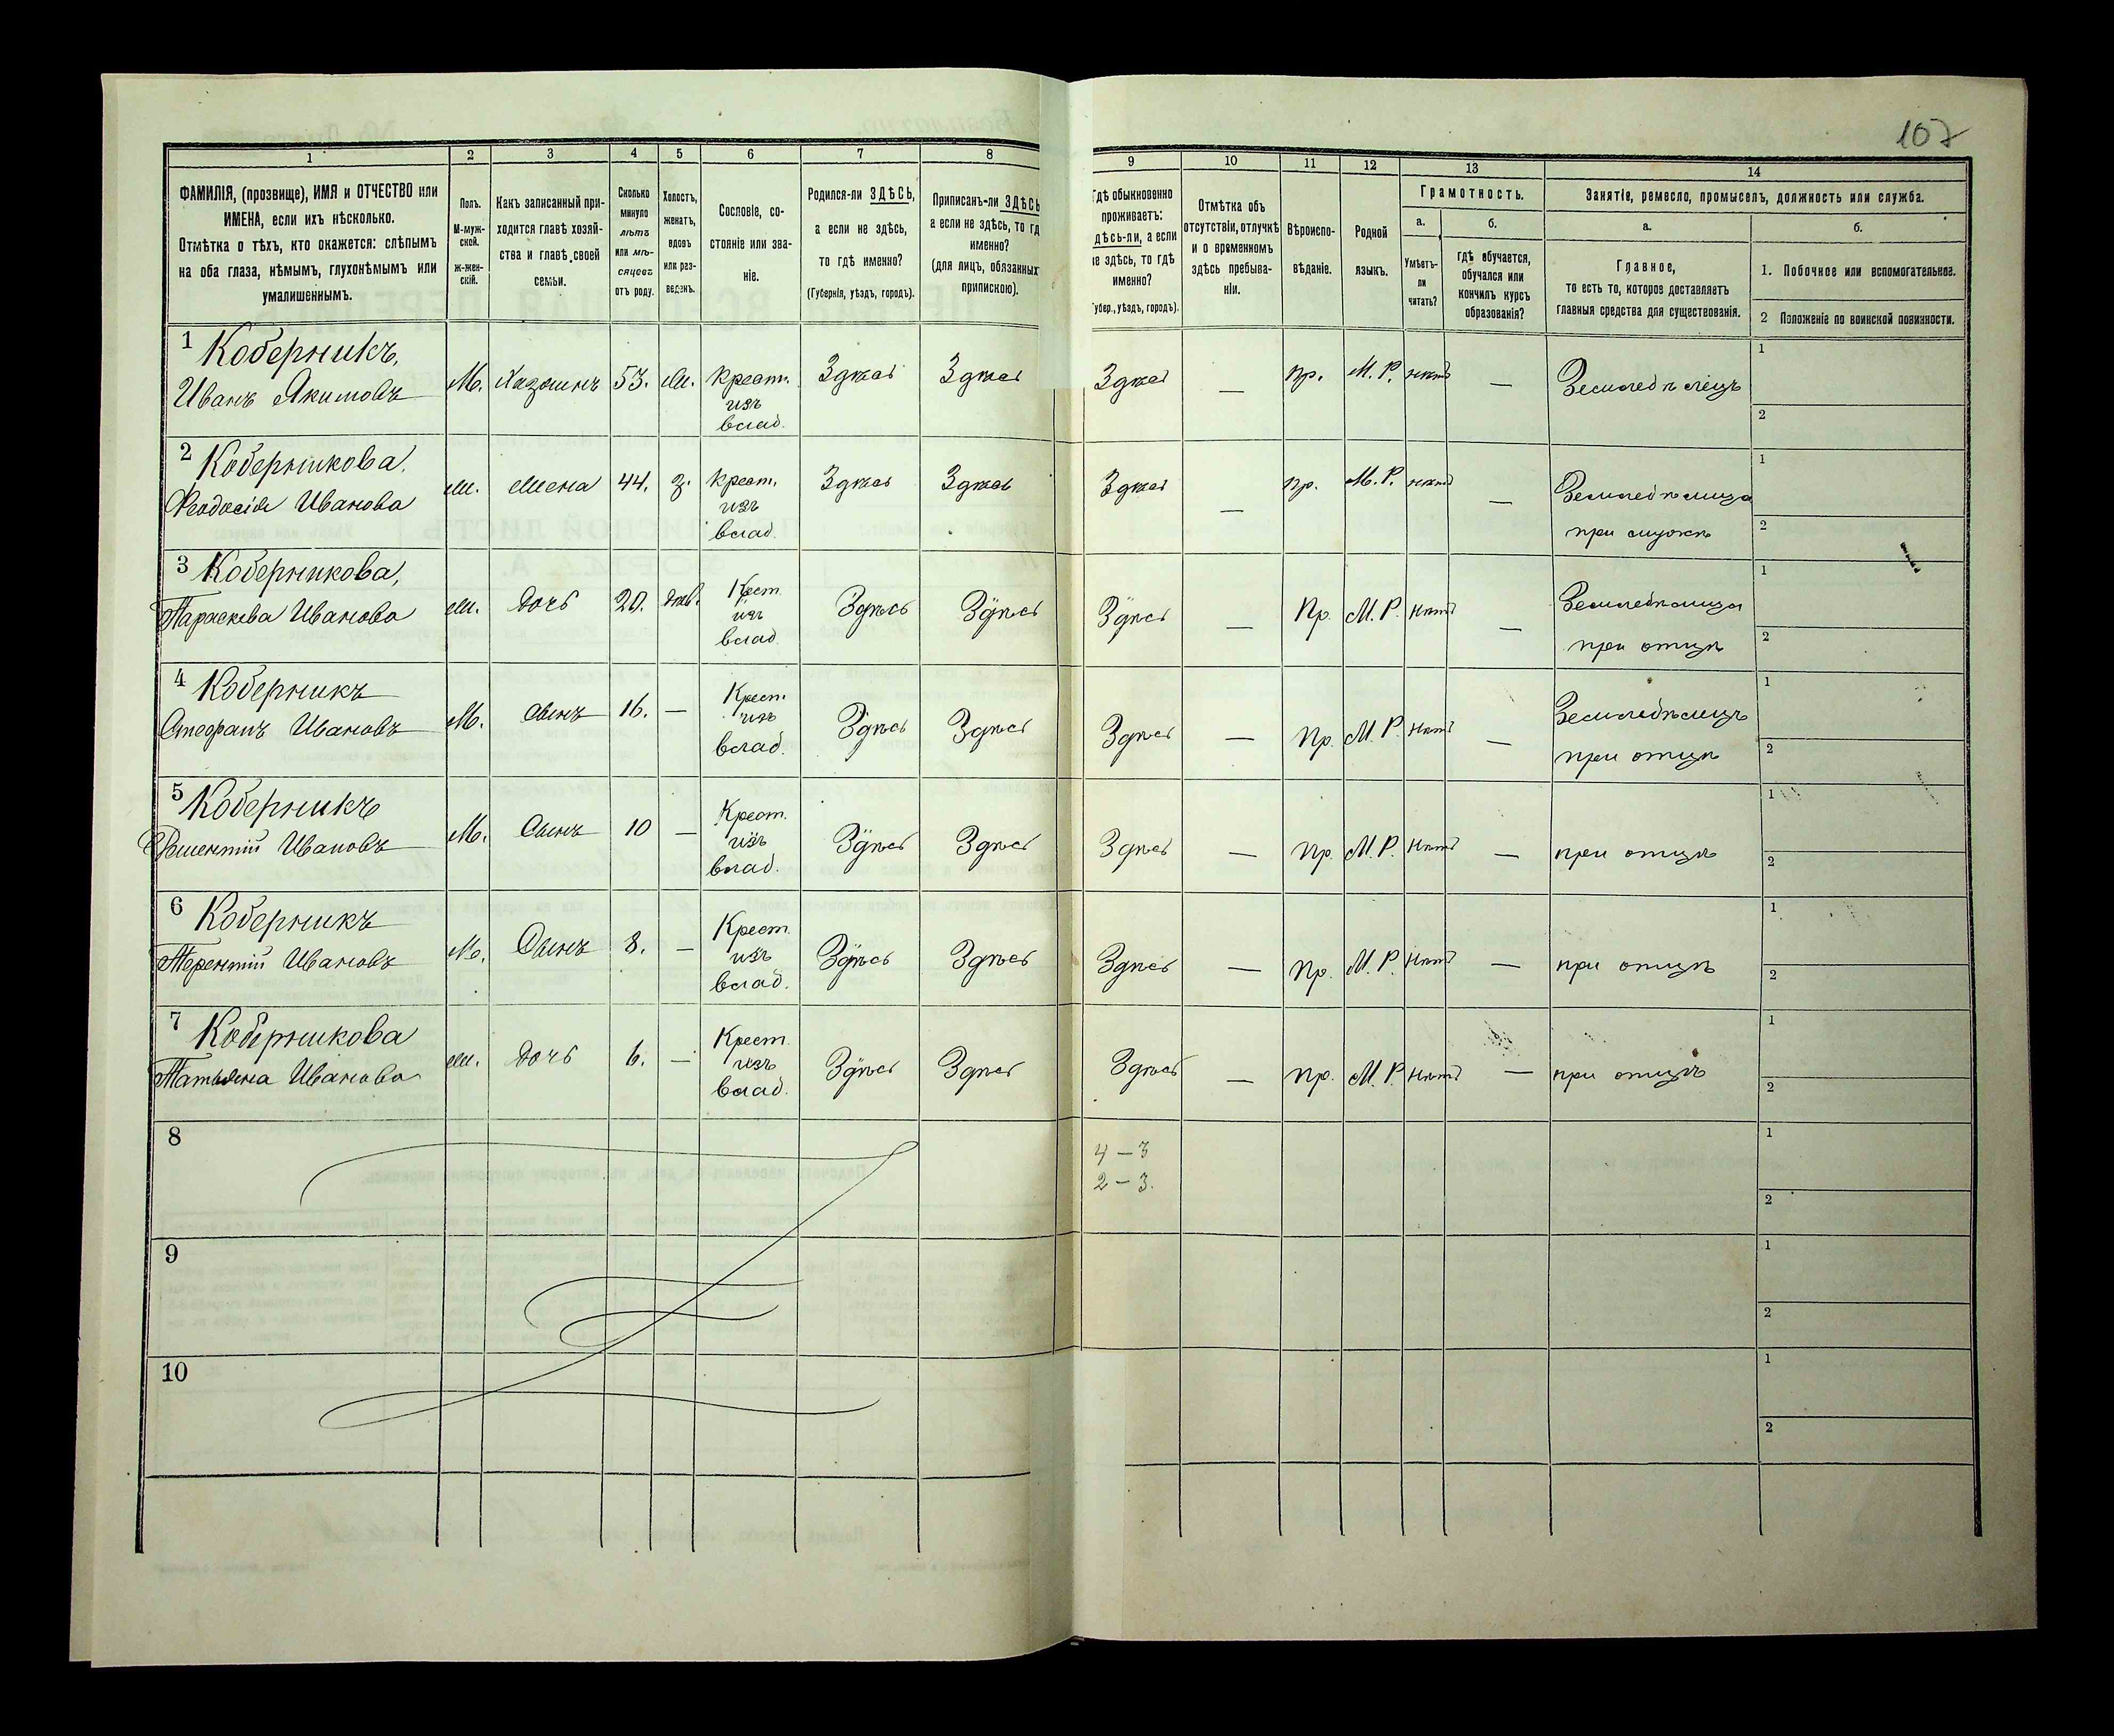 107
1 2 3 4 5 6 7 8 9 10 11 12 13 14
ФАМИЛІЯ, (прозвище), ИМЯ и ОТЧЕСТВО или
ИМЕНА, если ихъ нѣсколько.
Отмѣтка о тѣхъ, кто окажется: слѣпымъ
на оба глаза, нѣмымъ, глухонѣмымъ или
умалишеннымъ.
Полъ.
М-муж-
ской.
ж-жен-
скій.
Какъ записанный при-
ходится главѣ хозяй-
ства и главѣ своей
семьи.
Сколько
минуло
лѣтъ
или мѣ-
сяцевъ
отъ роду.
Холостъ,
женатъ,
вдовъ
или раз-
веденъ.
Сословіе, со-
стояніе или зва-
ніе.
Родился-ли ЗДѢСЬ,
а если не здѣсь,
то гдѣ именно?
(Губернія, уѣздъ, городъ).
Приписанъ-ли ЗДѢСЬ
а если не здѣсь, то гд
именно?
(для лицъ, обязанных
припискою).
Гдѣ обыкновенно
проживаетъ:
дѣсь-ли, а если
не здѣсь, то гдѣ
именно?
Губер., уѣздъ, городъ).
Отмѣтка объ
отсутствіи, отлучкѣ
и о временномъ
здѣсь пребыва-
ніи.
Вѣроиспо-
вѣданіе.
Родной
языкъ.
Грамотность.
а.
Умѣетъ-
ли
читать?
б.
гдѣ обучается,
обучался или
кончилъ курсъ
образованія?
Занятіе, ремесло, промыселъ, должность или служба.
а.
Главное,
то есть то, которое доставляетъ
главныя средства для существованія.
б.
1. Побочное или вспомогательное.
2 Положеніе по воинской повинности.
1 Коберникъ,
Иванъ Якимовъ М. Хазяинъ 53. ж. Крест. Здѣсь Здѣсь Здѣсь — пр. М. Р. нѣтъ — Земледѣлецъ 1
изъ
влад. 2
2 Коберникова,
Феодосія Иванова ж. жена 44. з. Крест. Здѣсь Здѣсь Здѣсь — пр. М. Р. нѣтъ — Земледѣлица 1
изъ
влад. при мужѣ 2
3 Коберникова,
Параскева Иванова ж. дочь 20. дѣв. Крест. Здѣсь Здѣсь Здѣсь — Пр. М. Р. нѣтъ — Земледѣлица 1
изъ
влад. при отцѣ 2
4 Коберникъ
Стефанъ Ивановъ М. сынъ 16. — Крест. Здѣсь Здѣсь Здѣсь — Пр. М. Р. нѣтъ — Земледѣлецъ 1
изъ
влад. при отцѣ 2
5 Коберникъ
Ивановъ М. Сынъ 10 — Крест. Здѣсь Здѣсь Здѣсь — Пр. М. Р. нѣтъ — при отцѣ 1
изъ
влад. 2
6 Коберникъ
Терентій Ивановъ М. Сынъ 8. — Крест. Здѣсь Здѣсь Здѣсь — Пр. М. Р. нѣтъ — при отцѣ 1
изъ
влад. 2
7 Коберникова
Татьяна Иванова ж. дочь 6. — Крест. Здѣсь Здѣсь Здѣсь — Пр. М. Р. нѣтъ — при отцѣ 1
изъ
влад. 2
8 4 — 3 1
2 — 3. 2
9 1
2
10 1
2